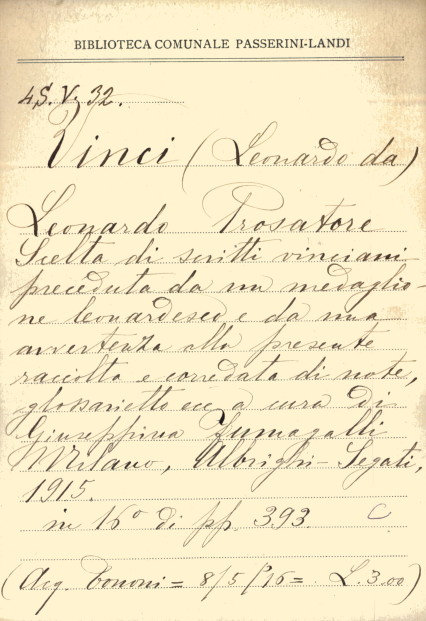 BIBLIOTECA COMUNALE PASSERINI-LANDI
4,S.V. 32.
Vinci (Leonardo da)
Leonardo Prosatore
Scelta di scritti vinciani
preceduta da un medaglio-
ne leonardesco e da una
avvertenza alla presente
raccolta e corredata di note,
glossarietto ecc a cura di
Giuseppina Fumagalli
Milano, Albrighi-Segati,
1915.
in 16º di pp. 393. C
(Acq. Bononi = 8/5/16 = L. 3.00)